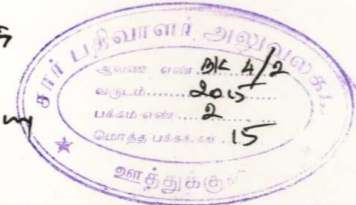 சார் பதிவாளர் அலுவலகம்
ஆவண எண் BK 4/2
வருடம் 2015
பக்கம் எண் 2
மொத்த பக்கங்கள் 15
ஊத்துக்கு